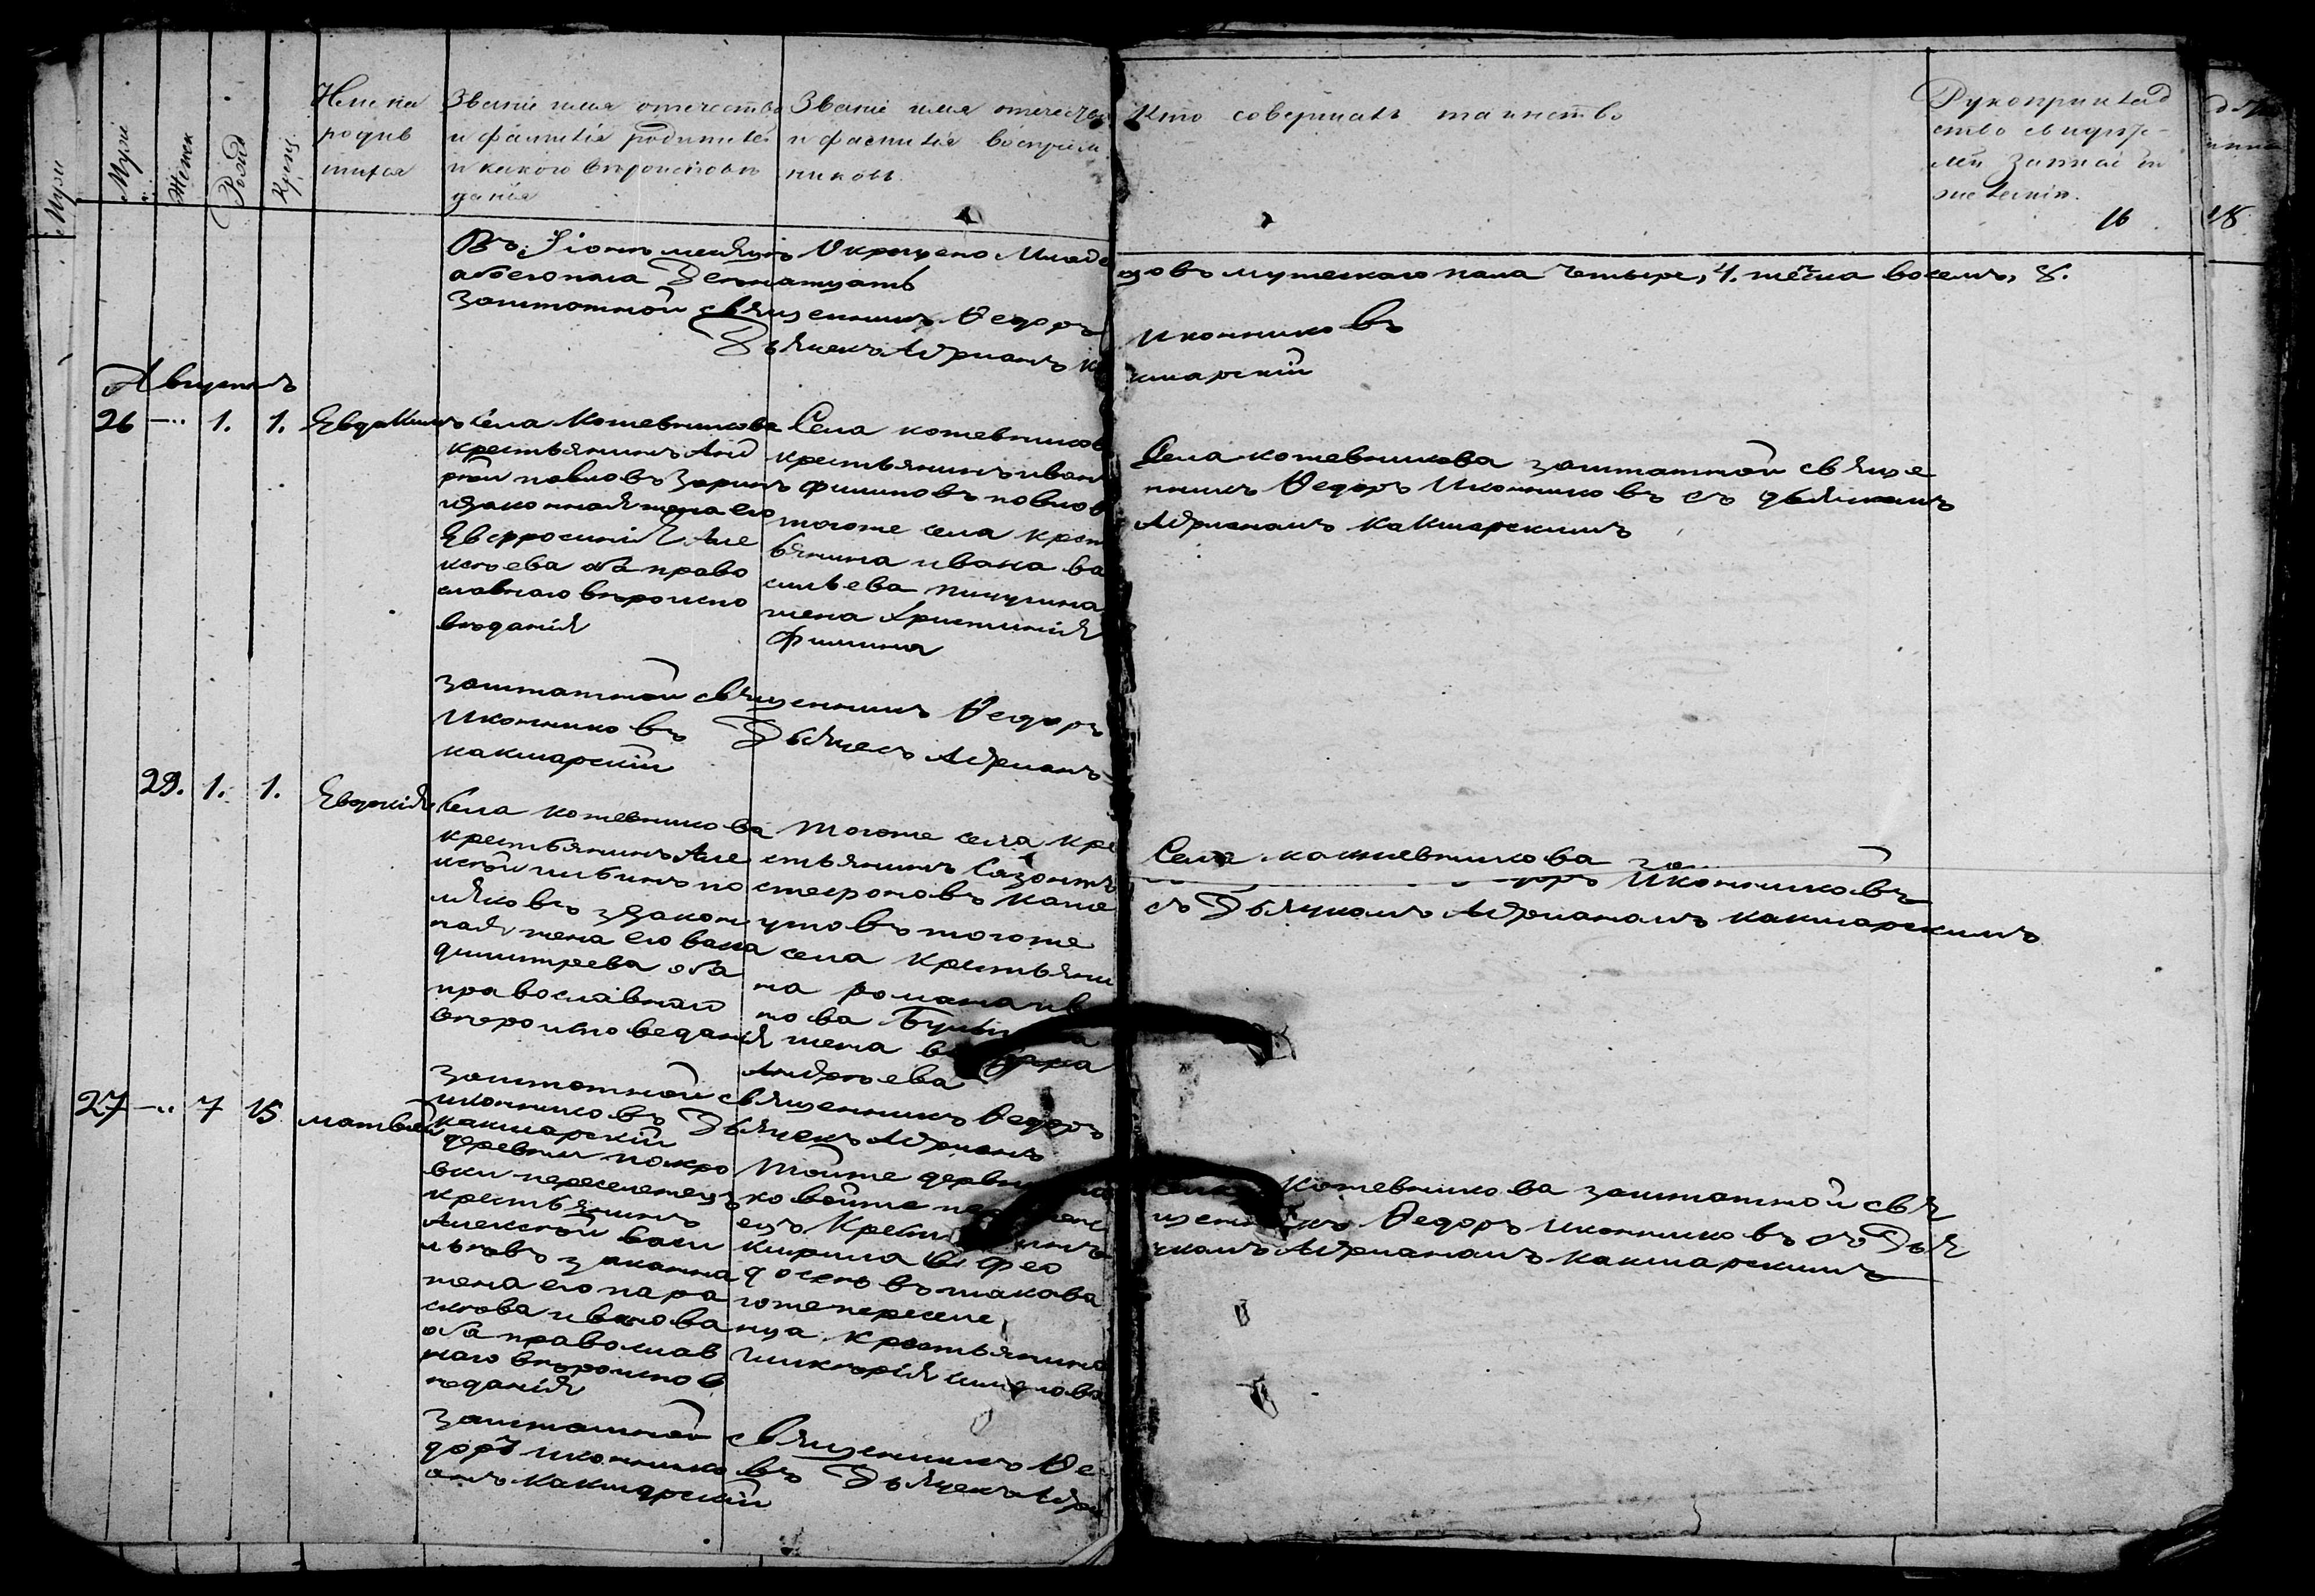 Мужі
Мужі
Женск
Рожд
Крещ
Имена
родив
шихся
Званіе имя отечество
и фамилія родителей
и какого вѣроисповѣ
данія
Званіе имя отечество
и фамилія воспріем
никовъ.
Кто совершалъ таинство
Рукоприклад
ство свидѣте-
лей записи по
желанію.
16
18
Въ Іюнѣ месяцѣ Окрещено Младе
нцовъ мужескаго пола четыре, 4. женска восемь, 8.
обоего пола Двенатцать
заштатной священникъ Ѳедоръ
Иконниковъ
Дьячекъ Адрианъ ка
кшарскій
Августъ
26 — 1. 1. Евдокимъ
Села Кожевникова
крестьянинъ Анд
рей павловъ Зоринъ
изаконная жена его
Евфросинія Але
ксѣева оба право
славнаго вѣроиспо
вѣданія
Села кожевников
крестьянинъ иван
филиповъ павлов
тогоже села крест
ьянина ивана ва
сильева пичугина
жена Христинія
филина
Села кожевникова заштатной свяще
нникъ Ѳедоръ Иконниковъ съ дьячкомъ
Адрианомъ Какшарскимъ
заштатной священникъ Ѳедоръ
Иконниковъ Дьячекъ Адрианъ
какшарскій
29. 1. 1. Евдокія
Села кожевникова
крестьянинъ Але
ксѣй
законн
ная жена его васса
димитрева оба
православнаго
вѣроисповеданія
тогоже села кре
стьянинъ Сазонтъ
тогоже
села крестьяни
на романа ив
нова
жена
Андрѣева
Села кожевникова
Иконниковъ
съ Дьячкомъ Адрианомъ какшарскимъ
заштатной священникъ Ѳедоръ
иконниковъ Дьячекъ Адрианъ
какшарскій
27 — 7 15 матвѣй
деревни покро
вки переселенецъ
крестьянинъ
Алексѣй васи
льевъ законна
жена его пара
скова иванова
оба православ
наго вѣроиспов
ѣданія
Тойже деревни
ковойже
ецъ Крест
кирила
такова
гоже переселе
нца крестьянина
Села Кожевникова заштатной свя
щенникъ Ѳедоръ иконниковъ съ Дья
чкомъ Адрианомъ какшарскимъ
заштатной священникъ Ѳе
доръ иконниковъ Дьячекъ Адри
анъ Какшарскій